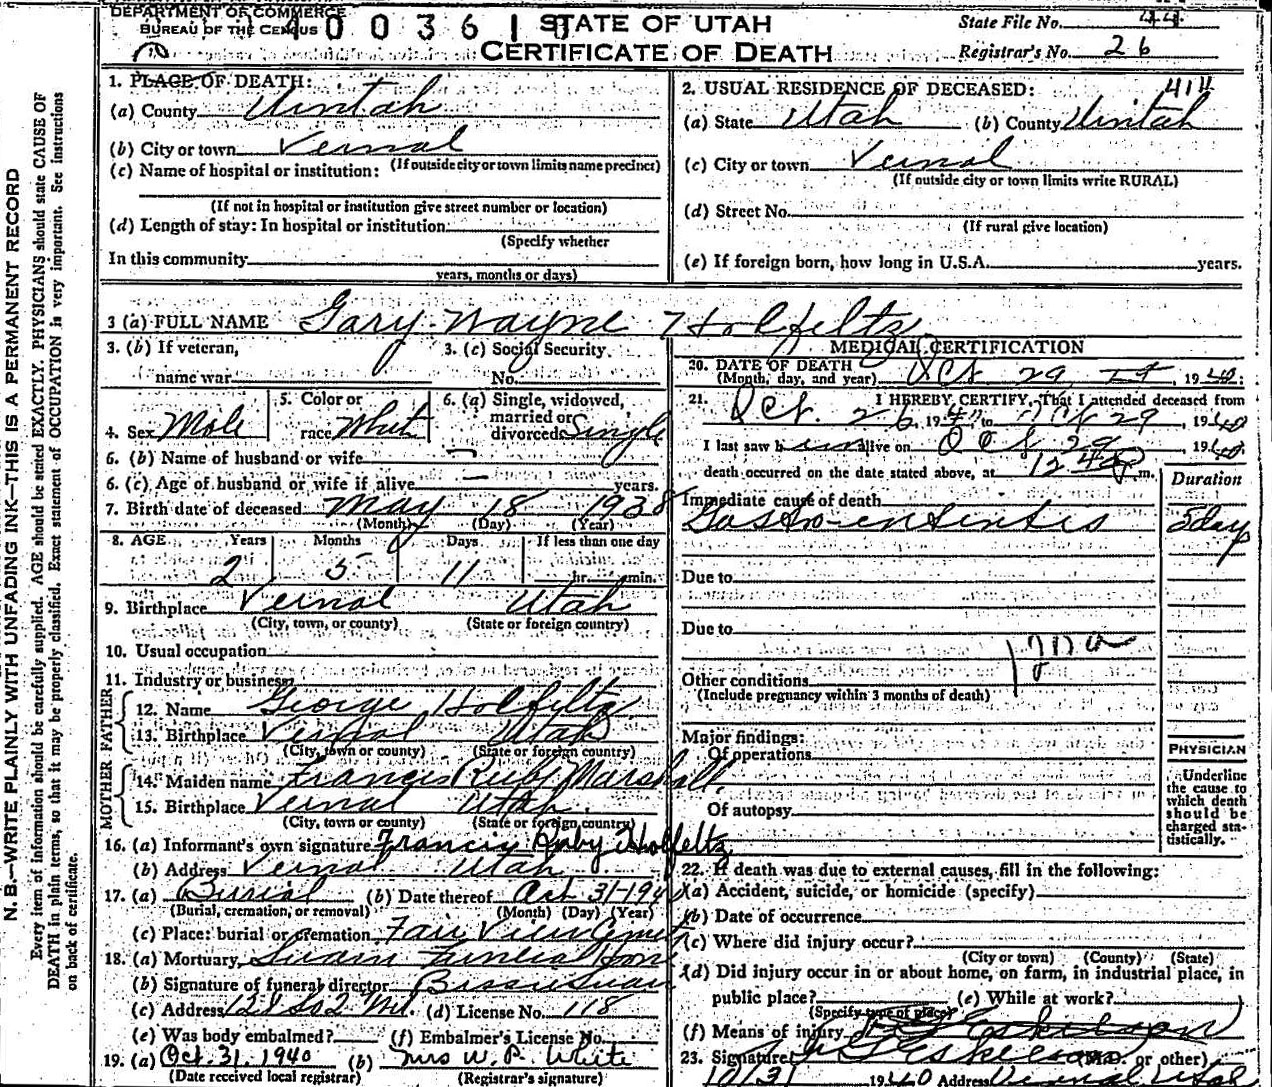 DEPARTMENT OF COMMERCE
BUREAU OF THE CENSUS
0 0 3 6 1
STATE OF UTAH
CERTIFICATE OF DEATH
State File No.
Registrar's No. 26
1. PLACE OF DEATH:
(a) County Uintah
(b) City or town Vernal
(If outside city or town limits name precinct)
(c) Name of hospital or institution:
(If not in hospital or institution give street number or location)
(d) Length of stay: In hospital or institution
(Specify whether
In this community
years, months or days)
2. USUAL RESIDENCE OF DECEASED:
(a) State Utah (b) County Uintah
(c) City or town Vernal
(If outside city or town limits write RURAL)
(d) Street No.
(If rural give location)
(e) If foreign born, how long in U.S.A. years.
3 (a) FULL NAME Gary Wayne Holfeltz
3. (b) If veteran,
name war
3. (c) Social Security
No.
4. Sex Male
5. Color or
race White
6. (a) Single, widowed,
married or
divorced Single
6. (b) Name of husband or wife —
6. (c) Age of husband or wife if alive — years.
7. Birth date of deceased May 18 1938
(Month) (Day) (Year)
8. AGE Years Months Days If less than one day
2 5 11 hr. min.
9. Birthplace Vernal Utah
(City, town, or county) (State or foreign country)
10. Usual occupation
11. Industry or business
FATHER
12. Name George Holfeltz
13. Birthplace Vernal Utah
(City, town or county) (State or foreign country)
MOTHER
14. Maiden name Francis Ruby Marshall
15. Birthplace Vernal Utah
(City, town or county) (State or foreign country)
16. (a) Informant's own signature Francis Ruby Holfeltz
(b) Address Vernal Utah
17. (a) Burial (b) Date thereof Oct 31-194
(Burial, cremation, or removal) (Month) (Day) (Year)
(c) Place: burial or cremation Fair View Cemet
18. (a) Mortuary Swain Funeral Home
(b) Signature of funeral director Swain
(c) Address (d) License No. 118
(e) Was body embalmed? (f) Embalmer's License No.
19. (a) Oct. 31. 1940 (b) Mrs W. P. White
(Date received local registrar) (Registrar's signature)
MEDICAL CERTIFICATION
20. DATE OF DEATH
(Month, day, and year) Oct 29, 1940
21. I HEREBY CERTIFY, That I attended deceased from
Oct. 26, 1940 to Oct 29, 1940
I last saw him alive on Oct 29, 1940
death occurred on the date stated above, at m.
Duration
Immediate cause of death
Gastro-enteritis 5 day
Due to
Due to
Other conditions
(Include pregnancy within 3 months of death)
Major findings:
Of operations
Of autopsy
PHYSICIAN
Underline
the cause to
which death
should be
charged sta-
tistically.
22. If death was due to external causes, fill in the following:
(a) Accident, suicide, or homicide (specify)
(b) Date of occurrence
(c) Where did injury occur?
(City or town) (County) (State)
(d) Did injury occur in or about home, on farm, in industrial place, in
public place? (e) While at work?
(Specify type of place)
(f) Means of injury
23. Signature (M.D. or other)
10/31 1940 Address Vernal Utah
N. B.—WRITE PLAINLY WITH UNFADING INK—THIS IS A PERMANENT RECORD
Every item of information should be carefully supplied. AGE should be stated EXACTLY. PHYSICIANS should state CAUSE OF
DEATH in plain terms, so that it may be properly classified. Exact statement of OCCUPATION is very important. See instructions
on back of certificate.